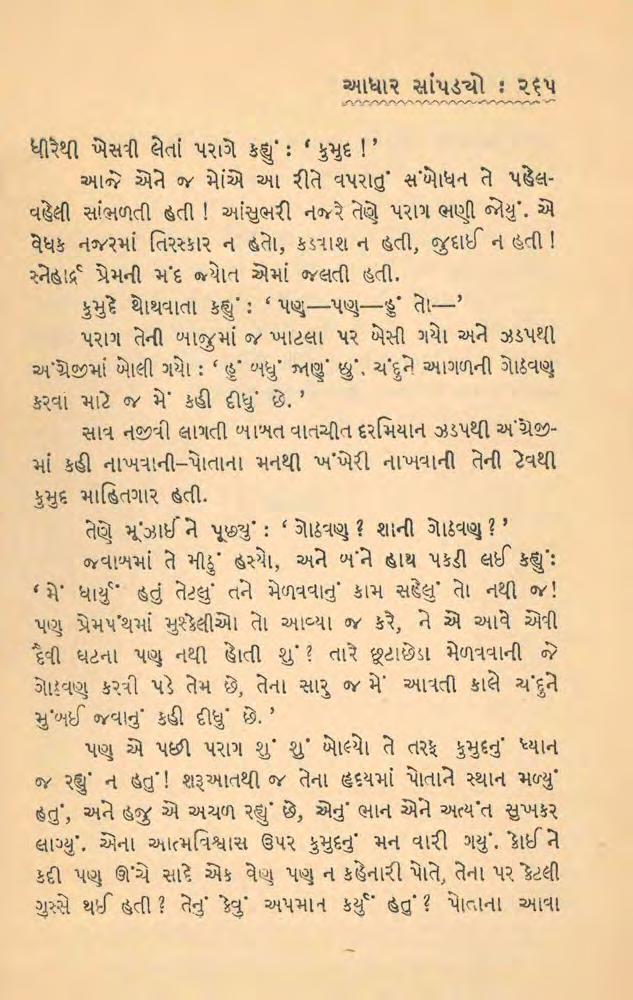 આધાર સાંપડયો : ૨૬૫
ધીરેથી ખેસવી લેતાં પરાગે કહ્યું : ‘ કુમુદ ! ’
આજે એને જ મોંએ આ રીતે વપરાતું સંબોધન તે પહેલ-
વહેલી સાંભળતી હતી ! આંસુભરી નજરે તેણે પરાગ ભણી જોયું. એ
વેધક નજરમાં તિરસ્કાર ન હતો, કડવાશ ન હતી, જુદાઈ ન હતી !
સ્નેહાર્દ્ર પ્રેમની મંદ જ્યોત એમાં જલતી હતી.
કુમુદે થોથવાતા કહ્યું : ‘ પણ—પણ—હું તો—’
પરાગ તેની બાજુમાં જ ખાટલા પર બેસી ગયો અને ઝડપથી
અંગ્રેજીમાં બોલી ગયો : ‘ હું બધું જાણું છું. ચંદુને આગળની ગોઠવણ
કરવા માટે જ મેં કહી દીધું છે. ’
સાવ નજીવી લાગતી બાબત વાતચીત દરમિયાન ઝડપથી અંગ્રેજી-
માં કહી નાખવાની–પોતાના મનથી ખંખેરી નાખવાની તેની ટેવથી
કુમુદ માહિતગાર હતી.
તેણે મૂંઝાઈ ને પૂછ્યું : ‘ ગોઠવણ ? શાની ગોઠવણ ? ’
જવાબમાં તે મીઠું હસ્યો, અને બંને હાથ પકડી લઈ કહ્યું:
‘ મેં ધાર્યું હતું તેટલું તને મેળવવાનું કામ સહેલું તો નથી જ!
પણ પ્રેમપંથમાં મુશ્કેલીઓ તો આવ્યા જ કરે, ને એ આવે એવી
દૈવી ઘટના પણ નથી હોતી શું ? તારે છૂટાછેડા મેળવવાની જે
ગોઠવણ કરવી પડે તેમ છે, તેના સારુ જ મેં આવતી કાલે ચંદુને
મુંબઈ જવાનું કહી દીધું છે. ’
પણ એ પછી પરાગ શું શું બોલ્યો તે તરફ કુમુદનું ધ્યાન
જ રહ્યું ન હતું ! શરૂઆતથી જ તેના હૃદયમાં પોતાને સ્થાન મળ્યું
હતું, અને હજુ એ અચળ રહ્યું છે, એનું ભાન એને અત્યંત સુખકર
લાગ્યું. એના આત્મવિશ્વાસ ઉપર કુમુદનું મન વારી ગયું. કોઈ ને
કદી પણ ઊંચે સાદે એક વેણ પણ ન કહેનારી પોતે, તેના પર કેટલી
ગુસ્સે થઈ હતી ? તેનું કેવું અપમાન કર્યું હતું ? પોતાના આવા